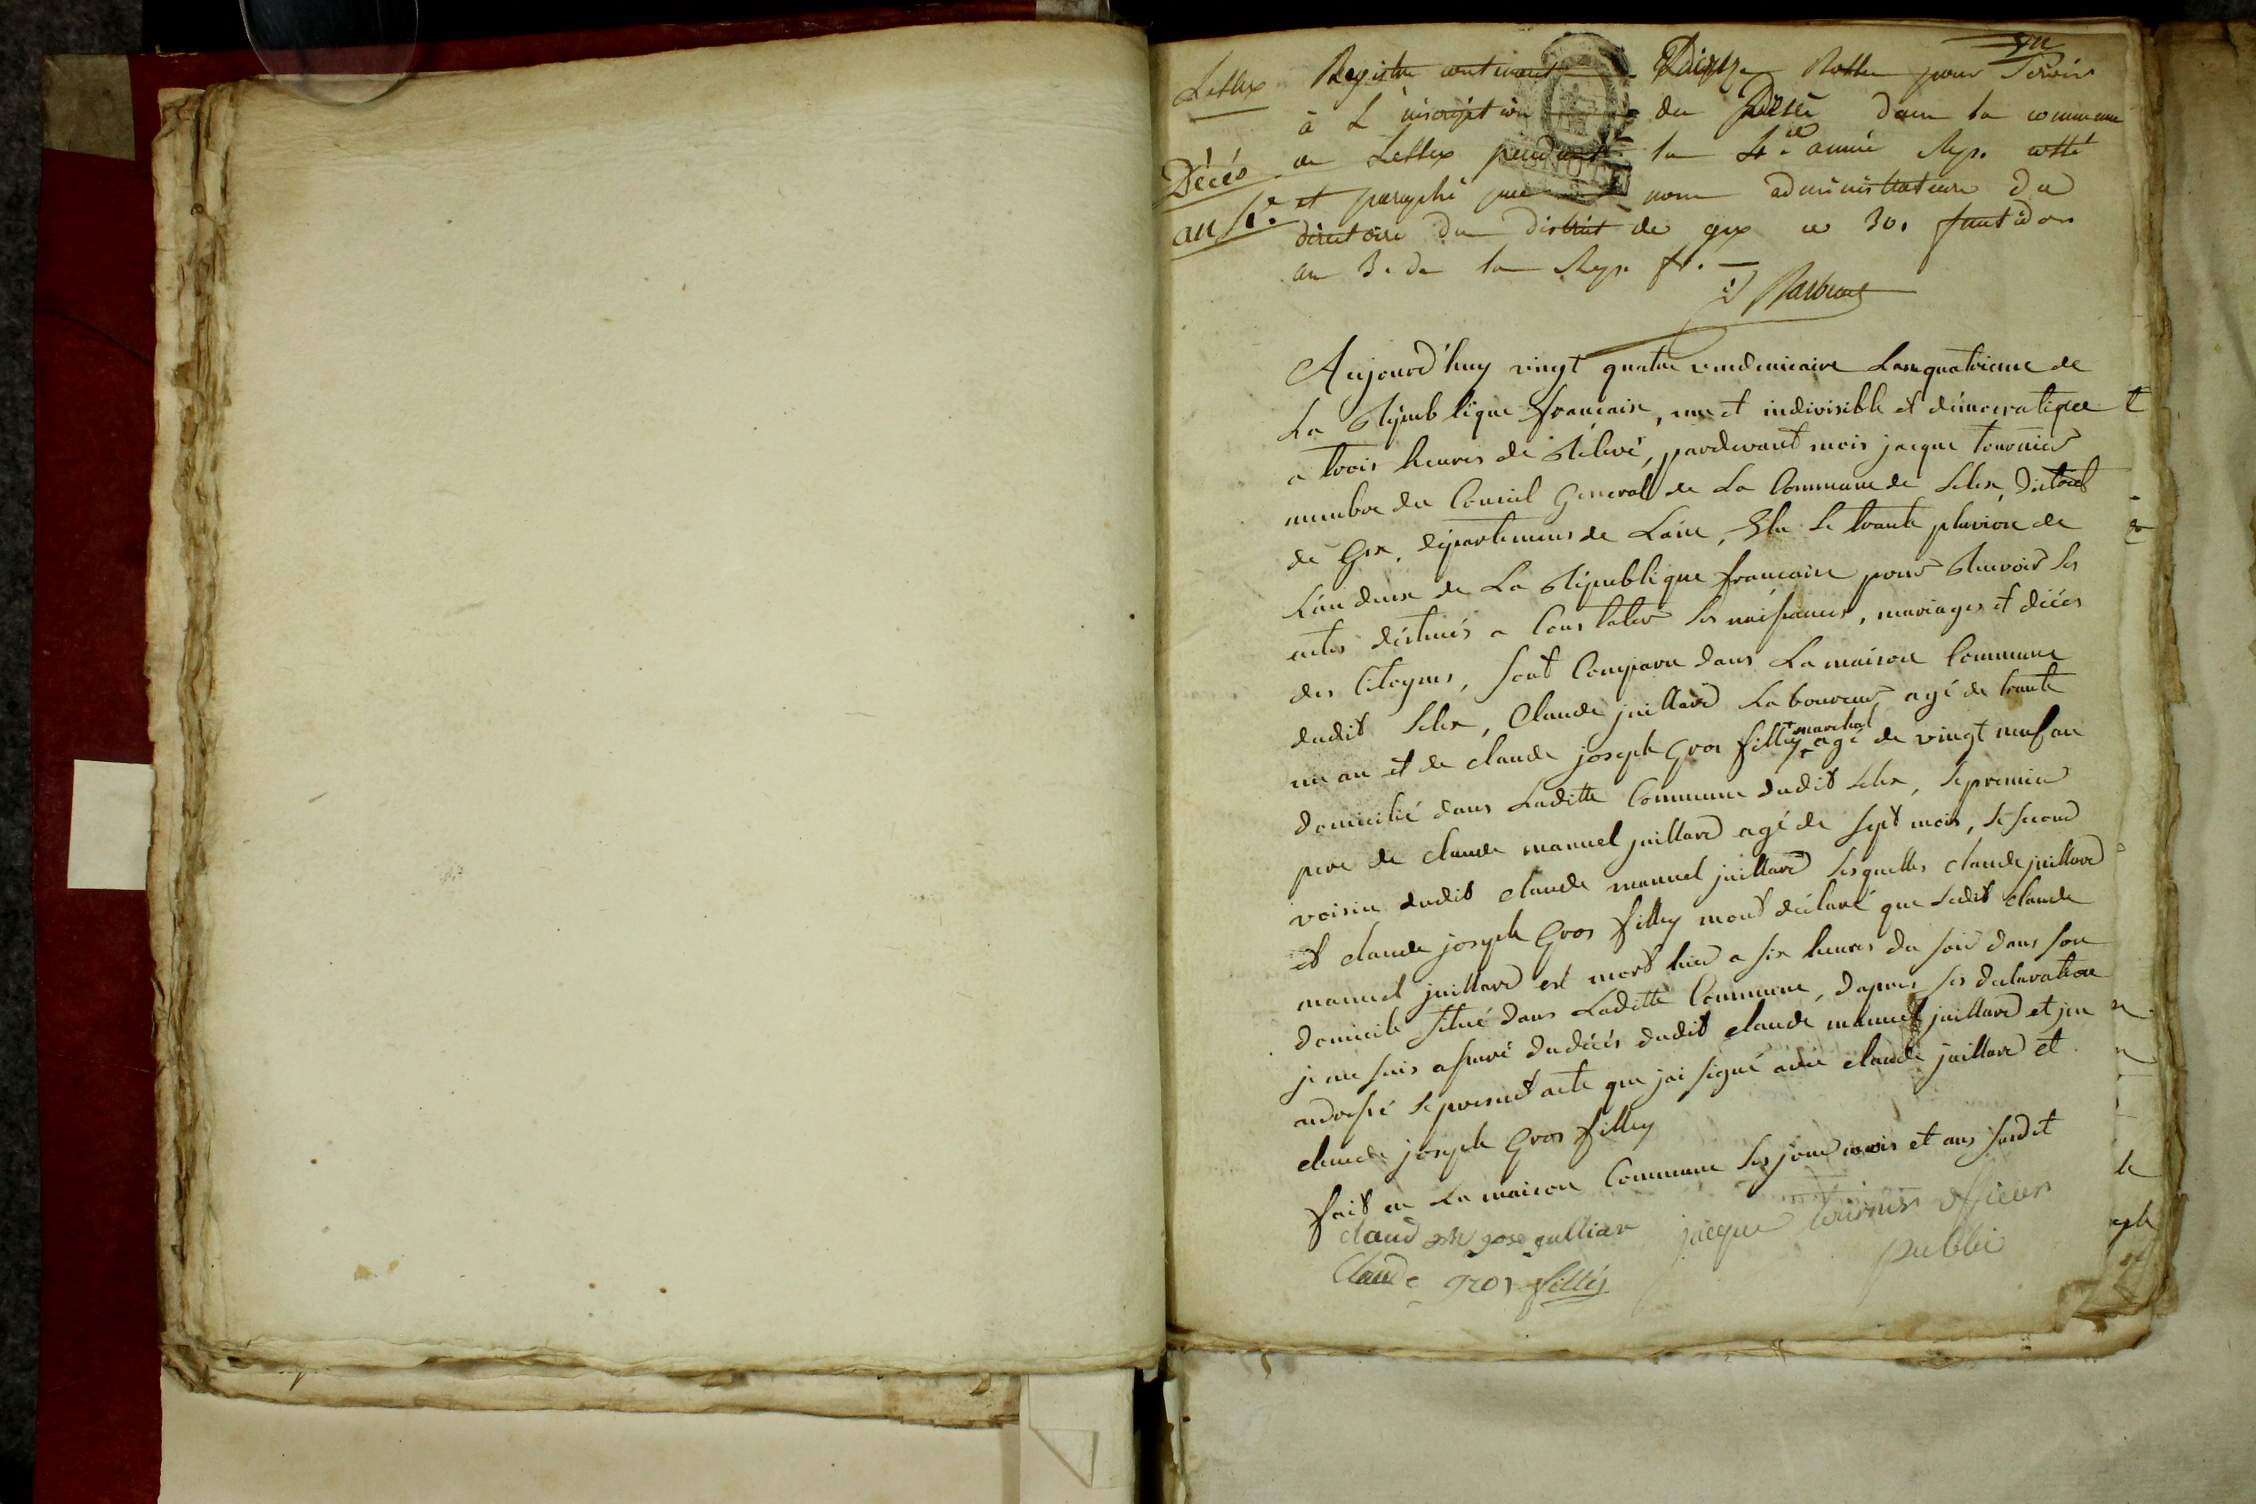 Lellex
Décés
an 4.e
Registre contenant Rolle pour Servir
à L'inscription des décés dans la commune
de Lellex pendant la 4.e année Rep. cotté
et paraphé par nous administrateur du
directoire du district de gex ce 30. fructidor
an 3. de la Rep. fr.
Aujourd'huy vingt quatre vendemiaire Lan quatrieme de
La République francaise, une et indivisible et démocratique
a trois heures de Relevé, pardevant mois jacque tournier
membre du Conseil General de La Commune de Lelex, district
de Gex, départemens de Lain, Elu le trante pluviose de
L'an deux de La République francaise pour Recevoir les
actes déstinés a Constater les naissances, mariages et décés
des Citoyens, sont Comparu dans La maison Commune
dudit Lelex, Claude juillard Laboureur agé de trante
un an et de claude joseph Gros fillex marchal agé de vingt neuf an
domicilié dans Laditte Commune dudit Lelex, le premier
pere de claude manuel juillard agé de sept mois, le second
voisin dudit claude manuel juillard lesquelles claude juillard
et claude joseph Gros filley mont déclaré que ledit claude
manuel juillard est mort hier a six heures du soir dans son
domicile situé dans Laditte Commune, dapres ses declaration
je me suis assuré du décés dudit claude manuel juillard et jen
ai dressé le present acte que jai signé avec claude juillard et
claude joseph Gros filley
fait en La maison Commune les jour mois et ans susdit
claud jose gulliar jacque tournier officier
publi
Claude gros fillés